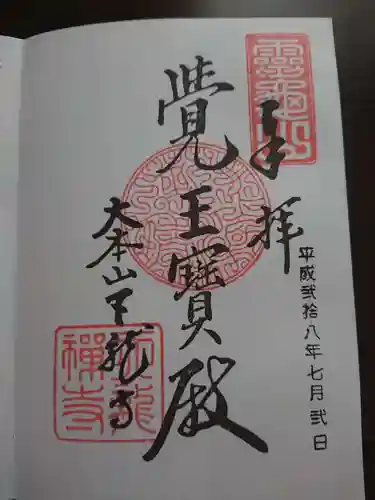 奉拝
平成弐拾八年七月弐日
覺王寶殿
大本山天龍寺
靈龜山
天龍禅寺